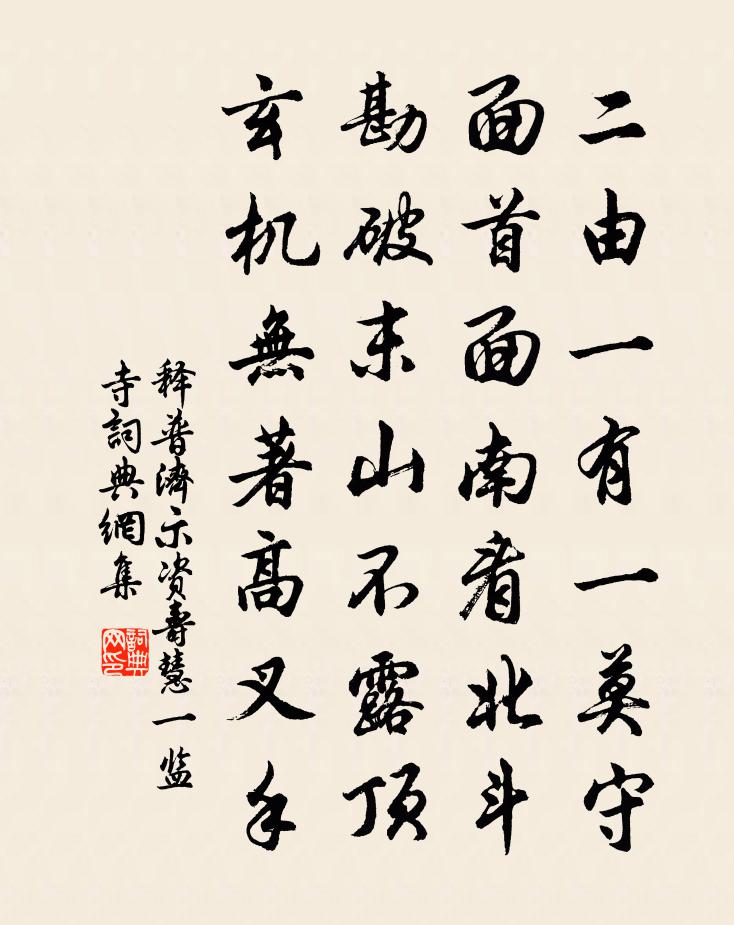 二由一有一莫守
面首面南看北斗
勘破末山不露顶
玄机無著高叉手
释普濟示资壽慧一监
寺詞典網集
詞典网印